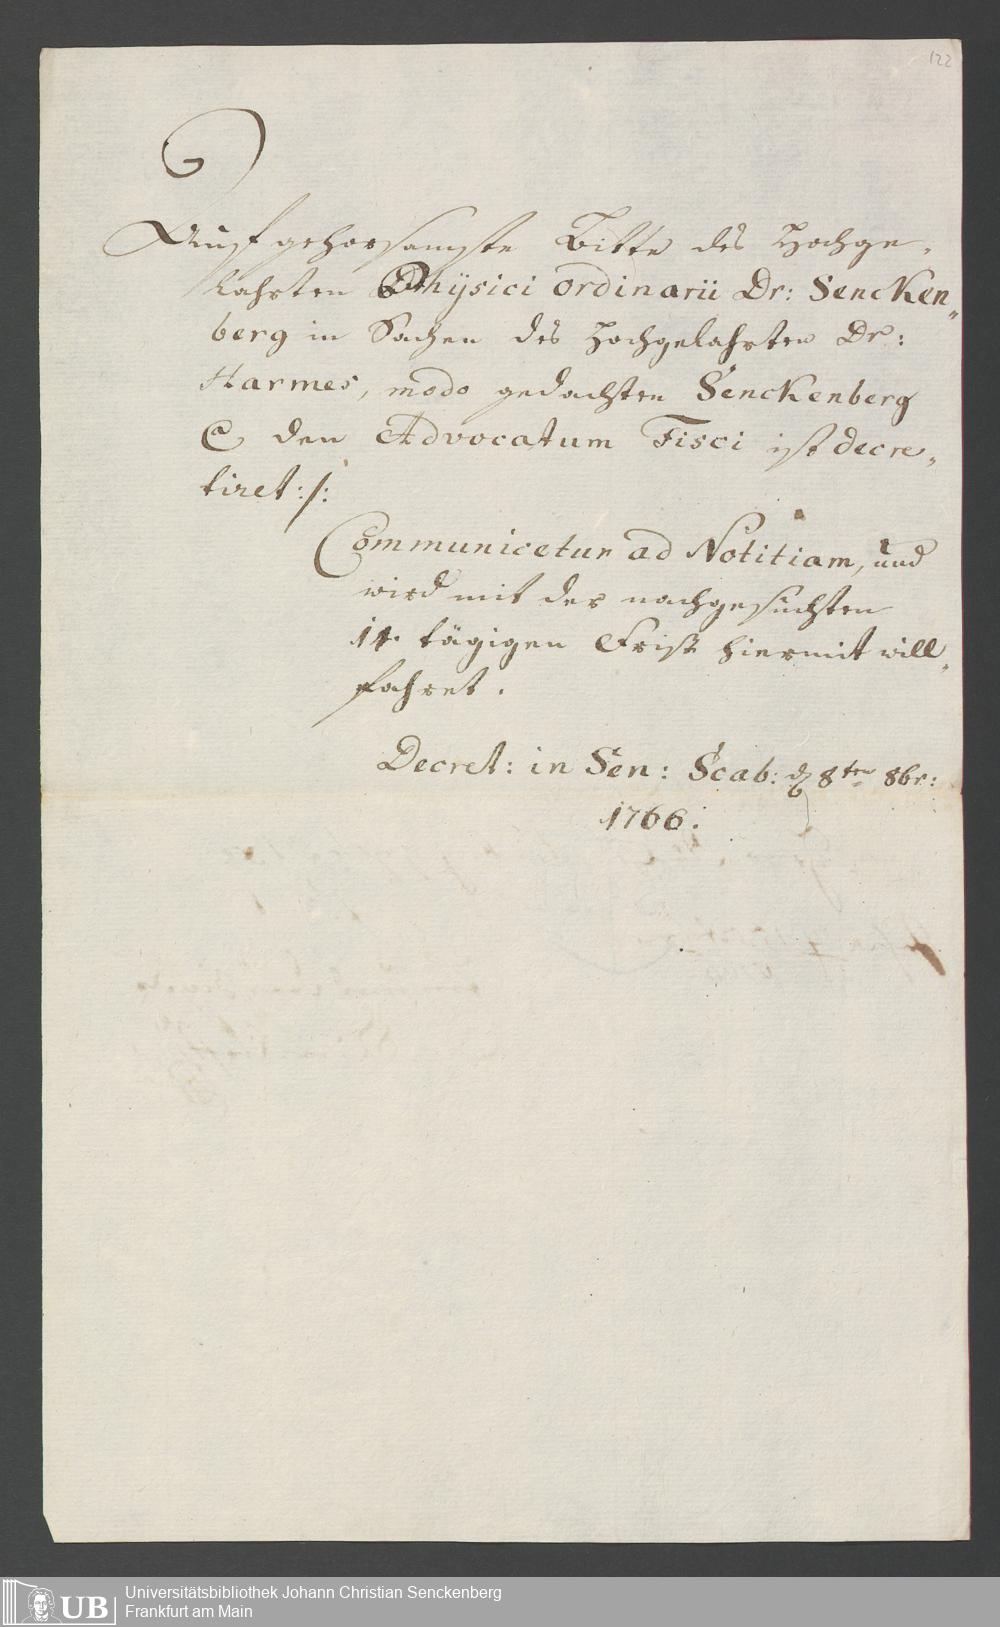 122
Auf gehorsamste Bitte des Hochge-
lahrten Physici ordinarii Dr: Sencken-
berg in Sachen des Hochgelahrten Dr:
Harmes, modo gedachten Senckenberg
Ca den Advocatum Fisci ist decre-
tiret:/:
Communicetur ad Notitiam, und
wird mit der nachgesuchten
14. tägigen Frist hiermit will-
fahret.
Decret: in Sen: Scab: d 8ten 8br:
1766.
UB
Universitätsbibliothek Johann Christian Senckenberg
Frankfurt am Main